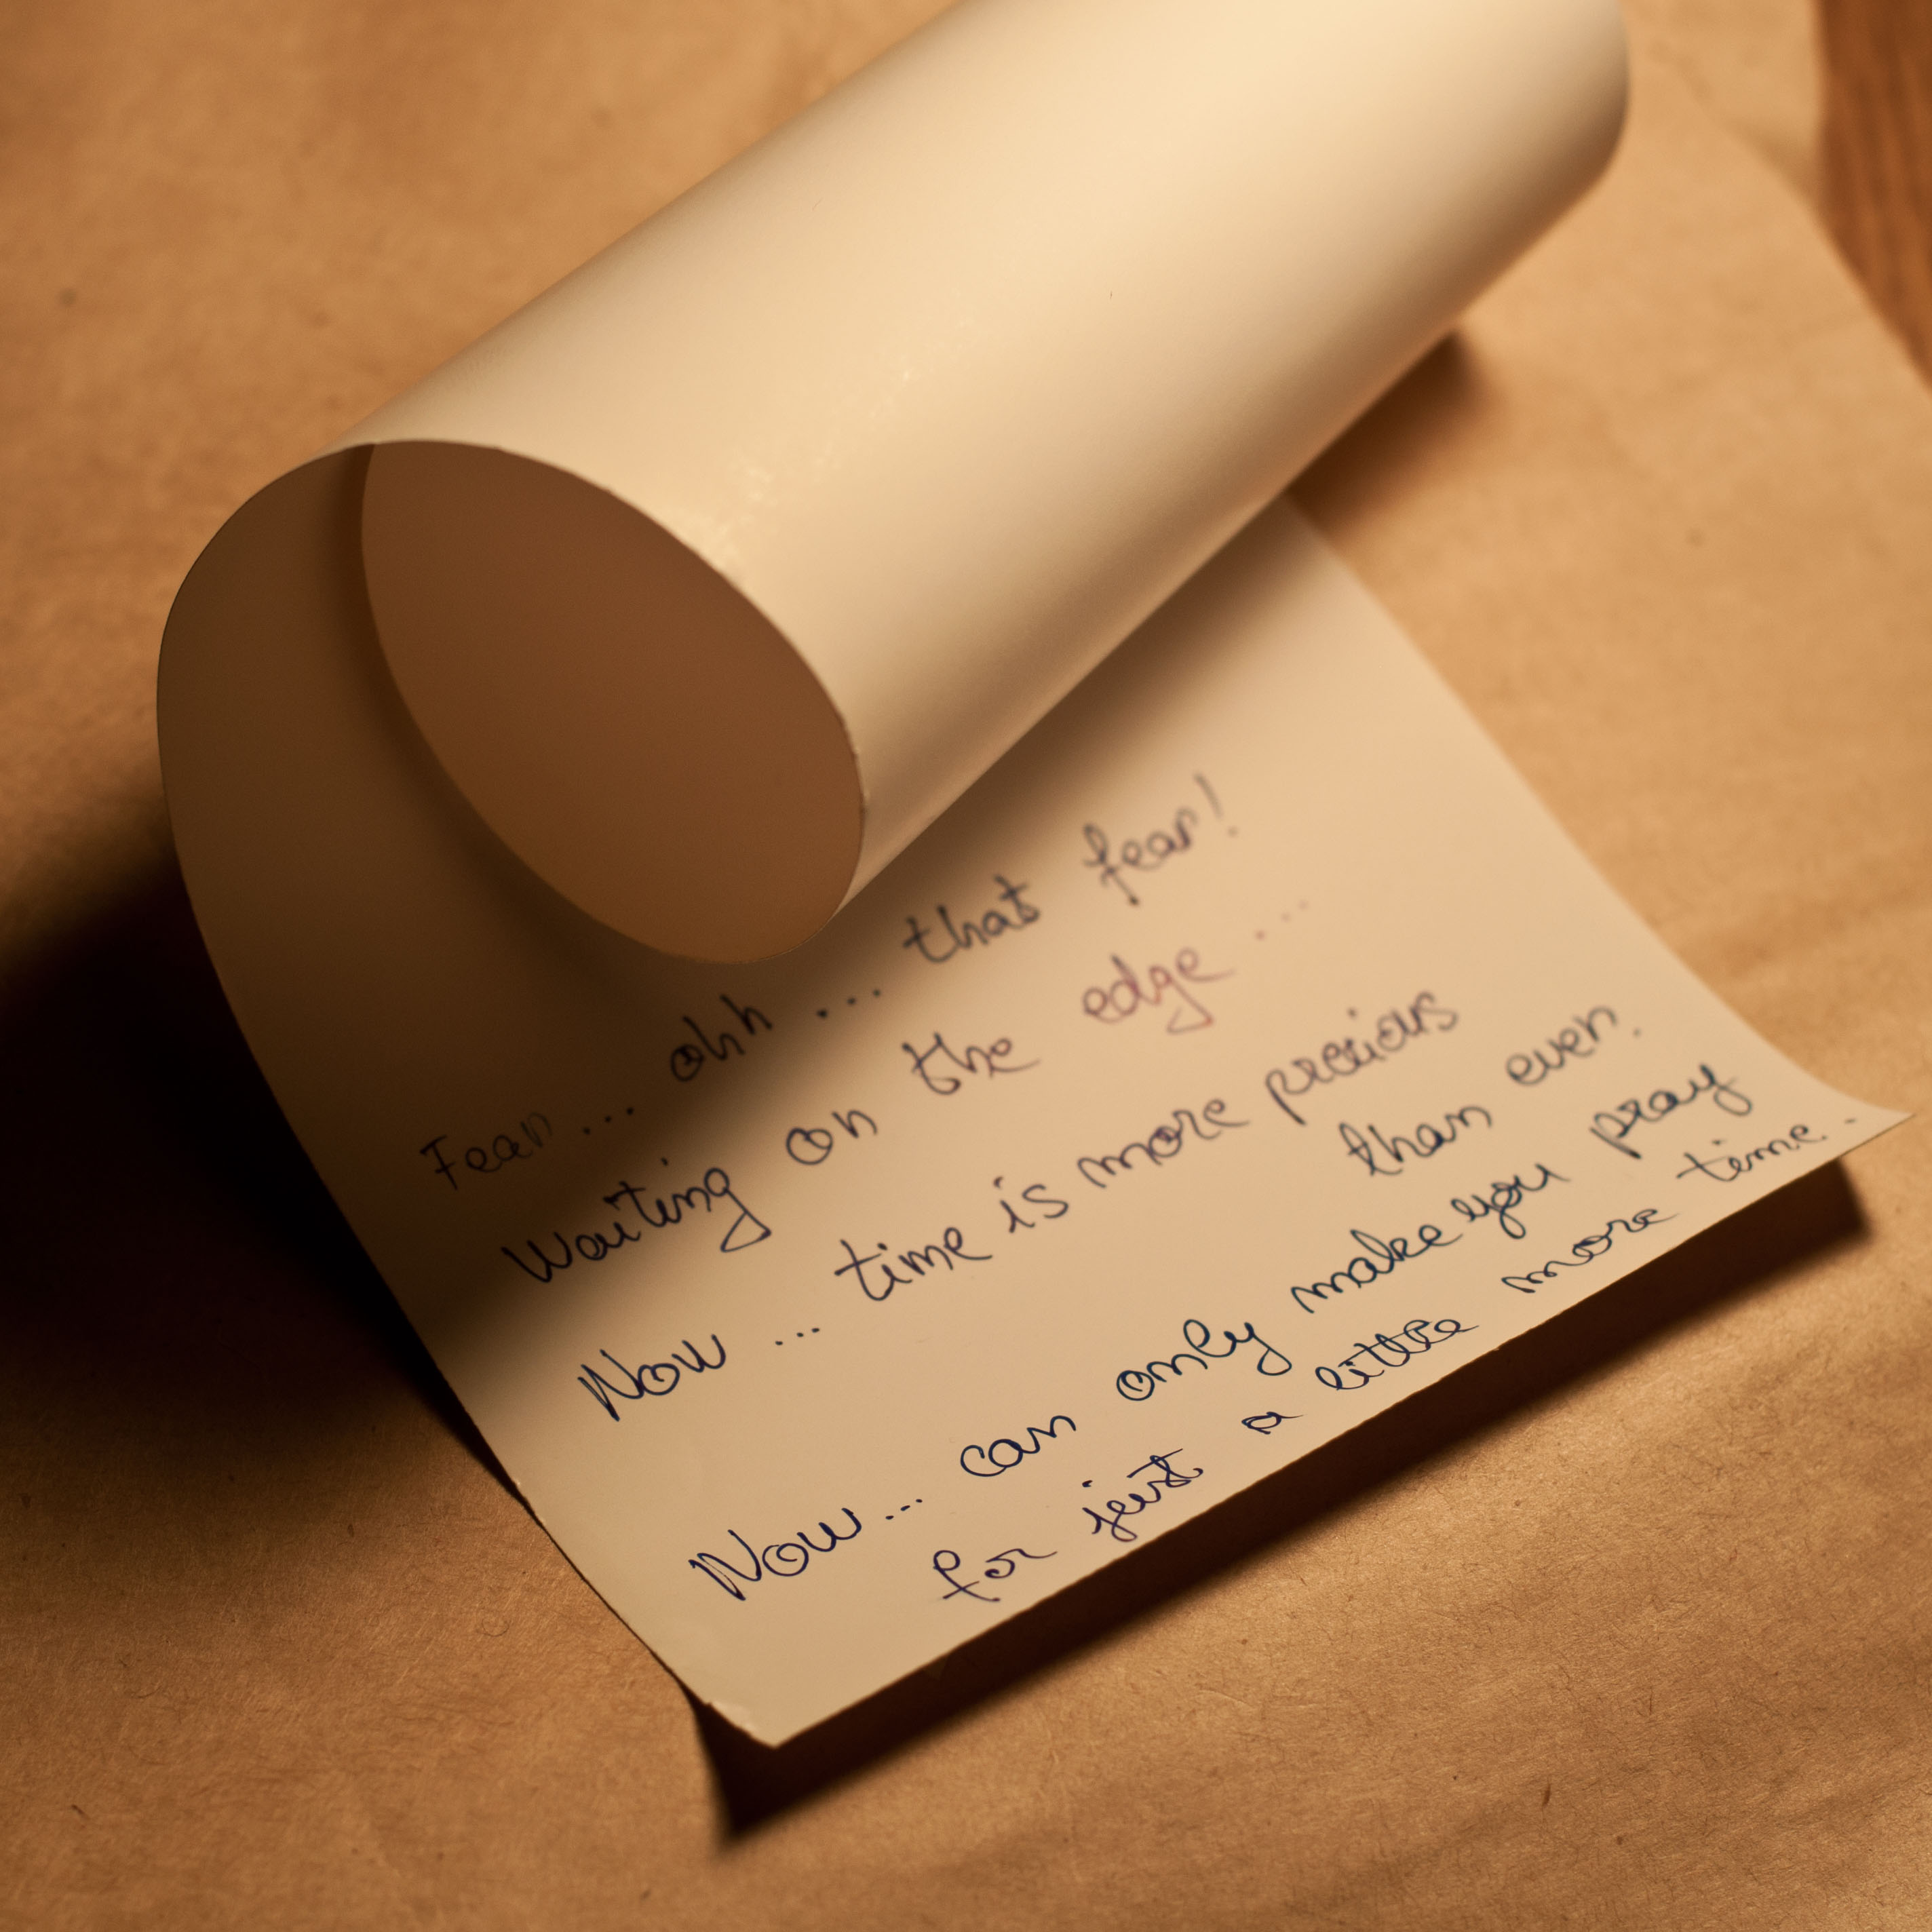 Fear... ohh ... that fear!
Waiting on the edge ...
Now ... time is more precious
than ever.
Now... can only make you pray
for just a little more time.